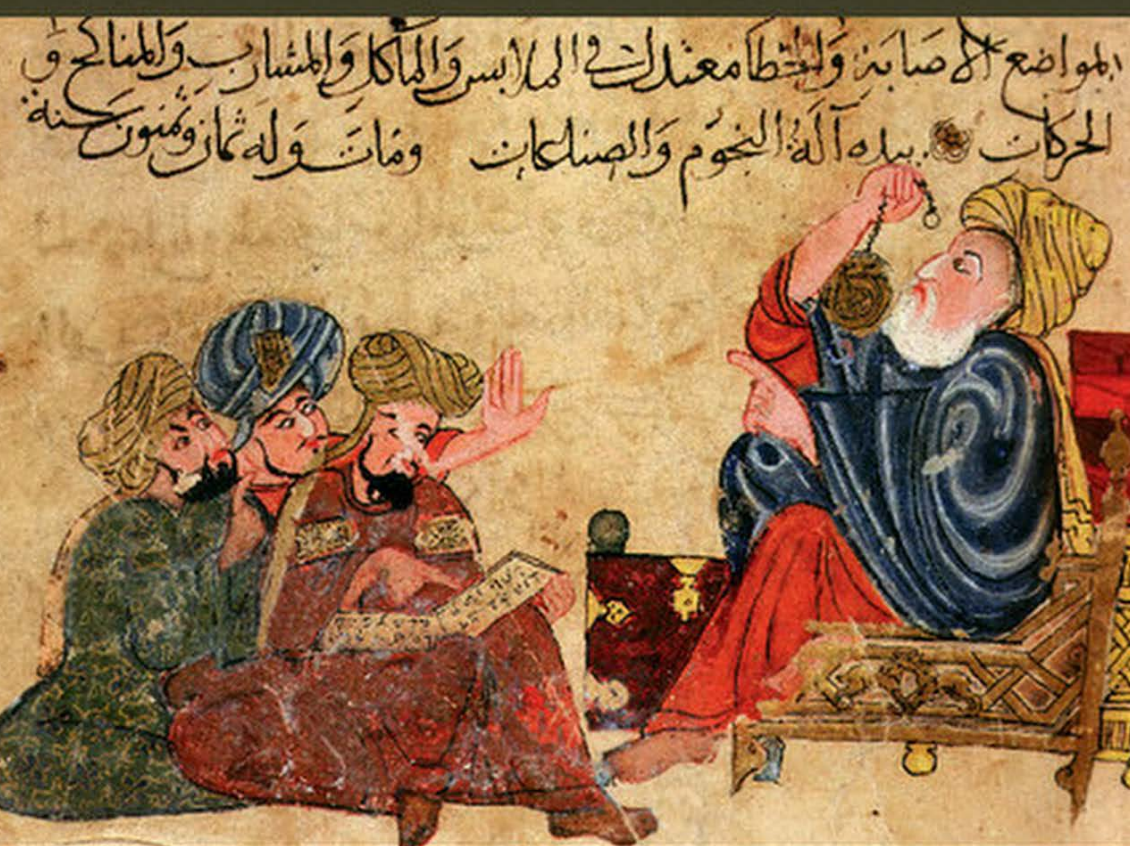 المواضع الاصابة والخطا معتدلا في الملابس والمآكل والمشارب والمناكح و
الحركات بيده آلة النجوم والصناعات ومات وله ثمان وثمنون سنة